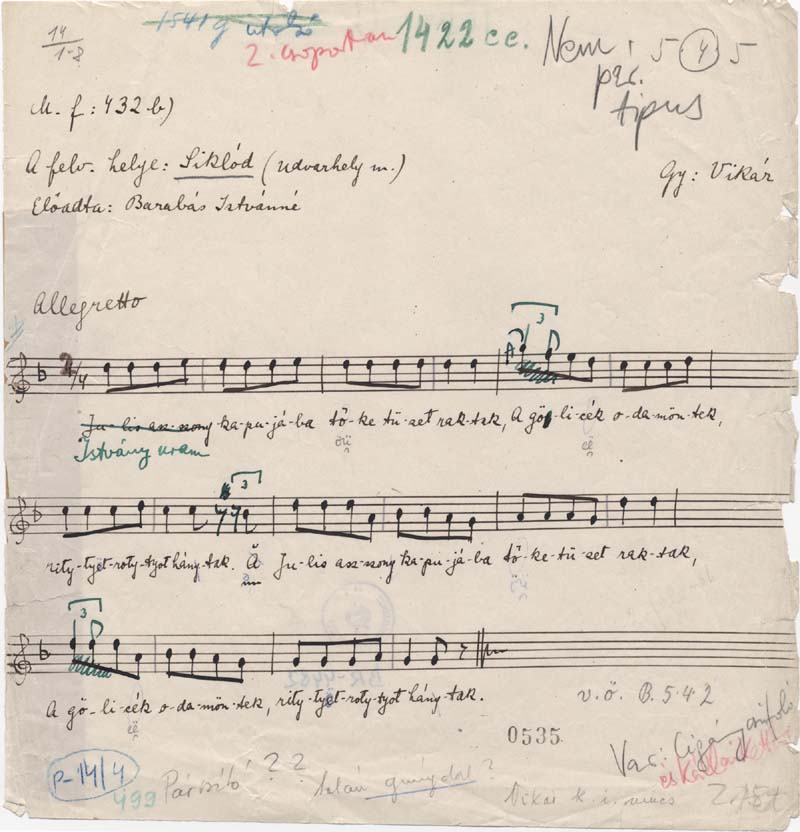 14
1-8
1541 g utolsó
2. csoportom
1422 cc.
Nem
5 4 5
per.
tipus
M. f: 432 b)
A felv. helye: Siklód (Udvarhely m.)
Gy: Vikár
Előadta: Barabás Istvánné
Allegretto
3
2/4
Ju-lis asz-szony ka-pu-já-ba tő-ke tü-zet rak-tak, A gö-li-cék o-da-mön-tek,
Istvány uram
3
rity-tyet-roty-tyot hány-tak. Ă Ju-lis asz-szony ka-pu-já-ba tő-ke-tü-zet rak-tak,
3
A gö-li-cék o-da-mön-tek, rity-tyet-roty-tyot hány-tak.
BR-4462
v.ö. B. 542
0535
Var: Cigány
P-14/4
499
Párosító ? ?
talán gúnydal ?
Vikár k. i. nincs